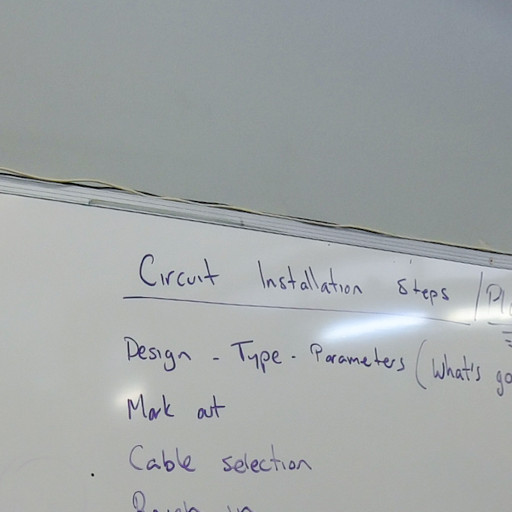 Circuit Installation Steps /
Design - Type - Parameters (What's
Mark out
Cable selection
Rough in